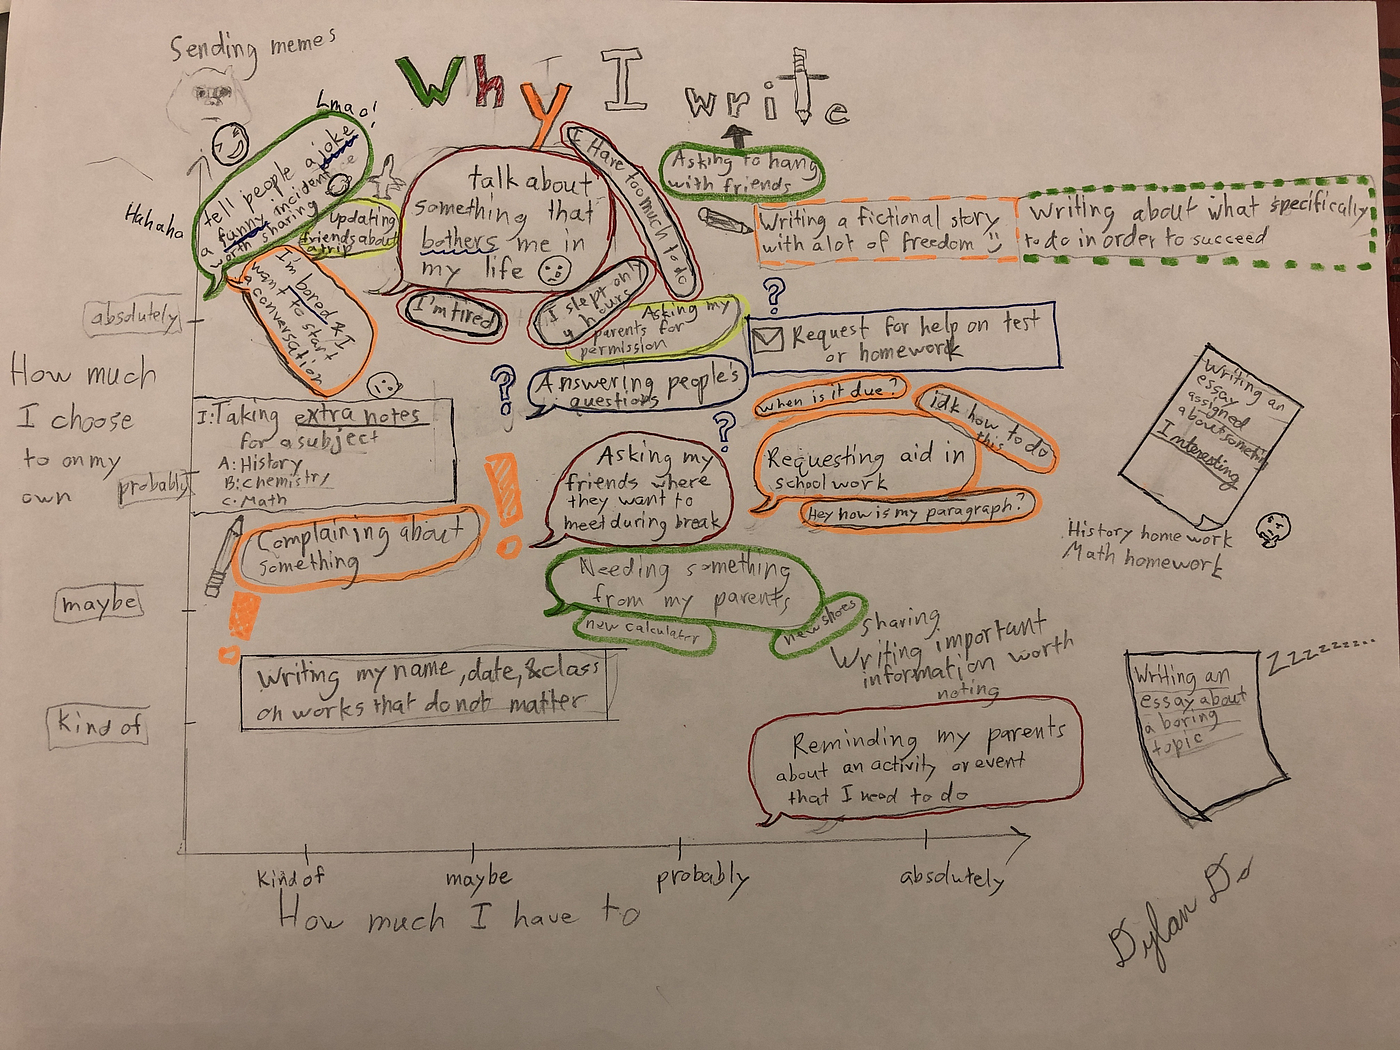 Sending memes
Why I write
Lmao!
Hahaha
tell people a joke
a funny incident
worth sharing
updating
friends about
a trip
I'm bored & I
want to start
conversation
talk about
something that
bothers me in
my life
I Have too much to do
I'm tired
I slept only
4 hours
Asking to hang
with friends
Writing a fictional story
with a lot of freedom
Writing about what specifically
to do in order to succeed
Asking my
parents for
permission
?
Request for help on test
or homework
?
Answering people's
questions
?
when is it due?
idk how to do
this
Requesting aid in
school work
Hey how is my paragraph?
Writing an
essay
assigned
about something
Interesting
History homework
Math homework
absolutely
How much
I choose
to on my
own
probably
maybe
Kind of
I:Taking extra notes
for a subject
A: History
B: Chemistry
C. Math
!
Complaining about
something
!
Asking my
friends where
they want to
meet during break
Needing something
from my parents
new calculater
new shoes
Sharing
Writing important
information worth
noting
Writing my name, date, & class
on works that do not matter
Reminding my parents
about an activity or event
that I need to do
Zzzzzzz........
Writing an
essay about
a boring
topic
Kind of
maybe
probably
absolutely
How much I have to
Dylan Do